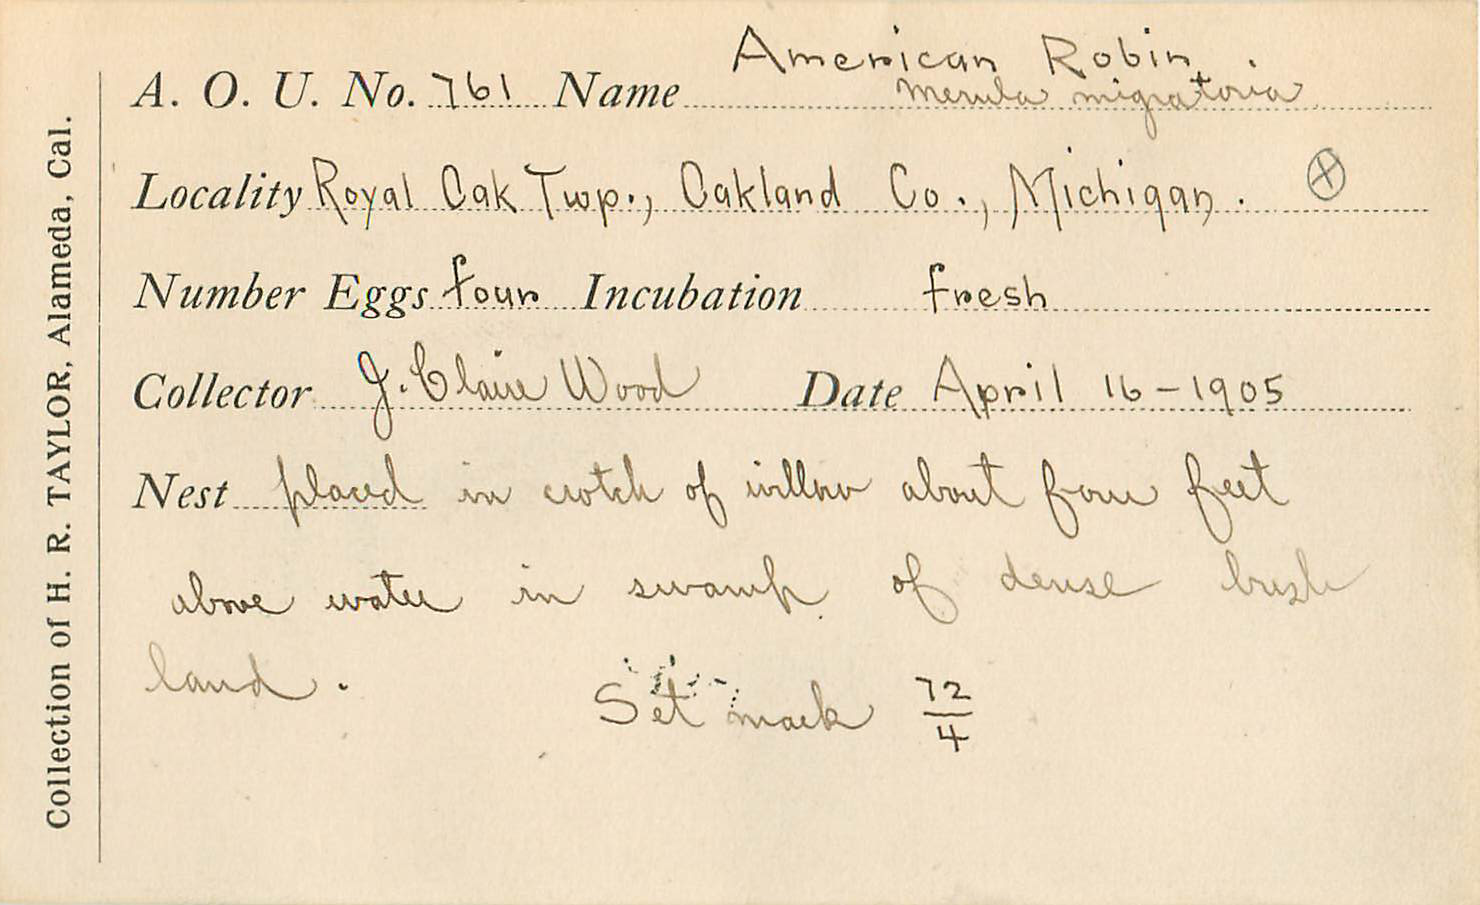 American Robin.
A. O. U. No. 761 Name Merula migratoria
Locality Royal Oak Twp., Oakland Co., Michigan.
Number Eggs four Incubation fresh
Collector J. Claire Wood Date April 16-1905
Nest placed in crotch of willow about four feet
above water in swamp of dense brush
land.
Set mark 72/4
Collection of H. R. TAYLOR, Alameda, Cal.